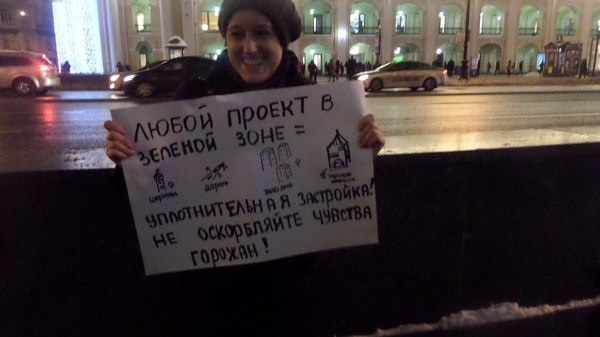 ЛЮБОЙ ПРОЕКТ В
ЗЕЛЕНОЙ ЗОНЕ =
церковь дорога жилой дом торговый комплекс
УПЛОТНИТЕЛЬНАЯ ЗАСТРОЙКА!
НЕ ОСКОРБЛЯЙТЕ ЧУВСТВА
ГОРОЖАН!